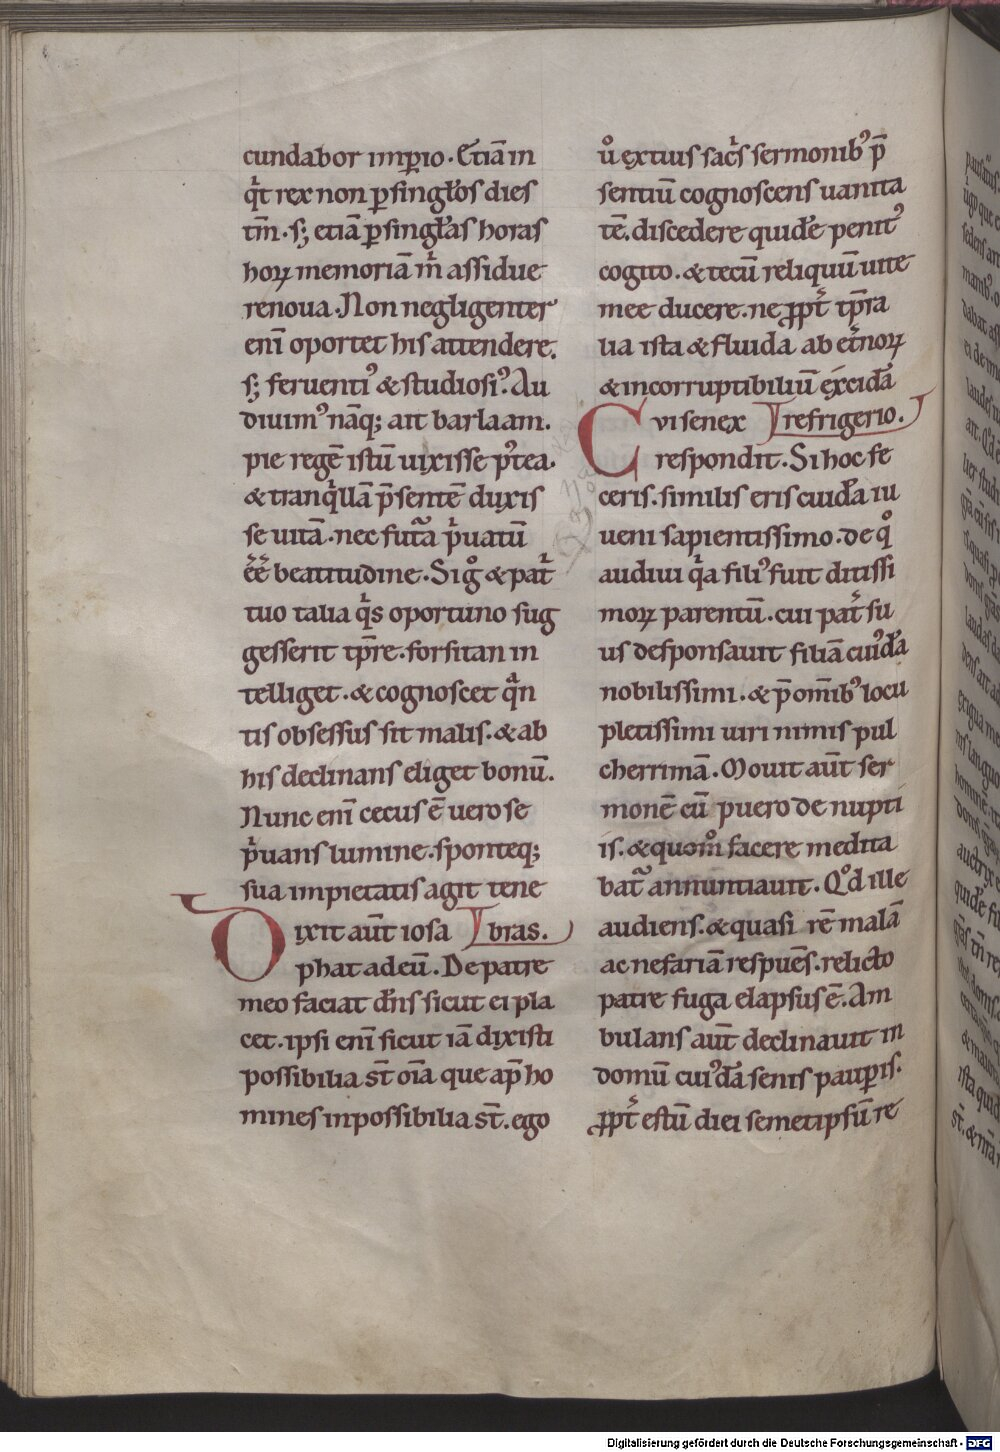 cundabor imꝑio. Etiā in
qͥt rex non ꝑ singłos dies
tm̄. s; etiā ꝑ singłas horas
hoꝝ memoriā m̄ assidue
renoua. Non negligenter
eni̅ oportet his attendere.
s; feruentiꝰ & studiosiꝰ. Au
diuimꝰ nāq; ait barlaam.
pie regē istū uixisse pꝰtea.
& tranqͥllā p̄sentē duxis
se uitā. nec futā pͥuatū
ēē beatitudine. Sigͦ & patͥ
tuo talia qͥs oportuno sug
gesserit tp̄re. forsitan in
telliget. & cognoscet qͣn
tis obsessus sit malis. & ab
his declinans eliget bonū.
Nunc eni̅ cecus ē uero se
pͥuans lumine. sponteq;
sua impietatis agit tene
Dixit aūt iosa bras.
phat ad eū. De patre
meo faciat dn̄s sicut ei pla
cet. ipsi eni̅ sicut iā dixisti
possibilia st̄ oīa que ap̄ ho
mines inpossibilia st̄. ego
uͦ ex tuis sacͥs sermonibꝰ p̄
sentiū cognoscens uanita
tē. discedere quidē penitꝰ
cogito. & tecū reliquū uite
mee ducere. ne ꝓpt̄ tp̄ra
lia ista & fluida ab et̄noꝝ
& incorruptibiliū excidā
Cui senex refrigerio.
respondit. Si hoc fe
ceris. similis eris cuidā iu
ueni sapientissimo. de qͦ
audiui qͥa filiꝰ fuit ditissi
moꝝ parentū. cui pat̄ su
us desponsauit filiā cuiꝰdā
nobilissimi. & p̄ om̄ibꝰ locu
pletissimi uiri nimis pul
cherrimā. Mouit aūt ser
monē cū puero de nupti
is. & quomͦ facere medita
batͣ annuntiauit. Qͦd ille
audiens. & quasi rē malā
ac nefariā respuēs. relicto
patre fuga elapsus ē. Am
bulans aūt declinauit in
domū cuiꝰdā senis pauꝑis.
ꝓpt̄ estū diei semetipsū re
Digitalisierung gefördert durch die Deutsche Forschungsgemeinschaft - DFG